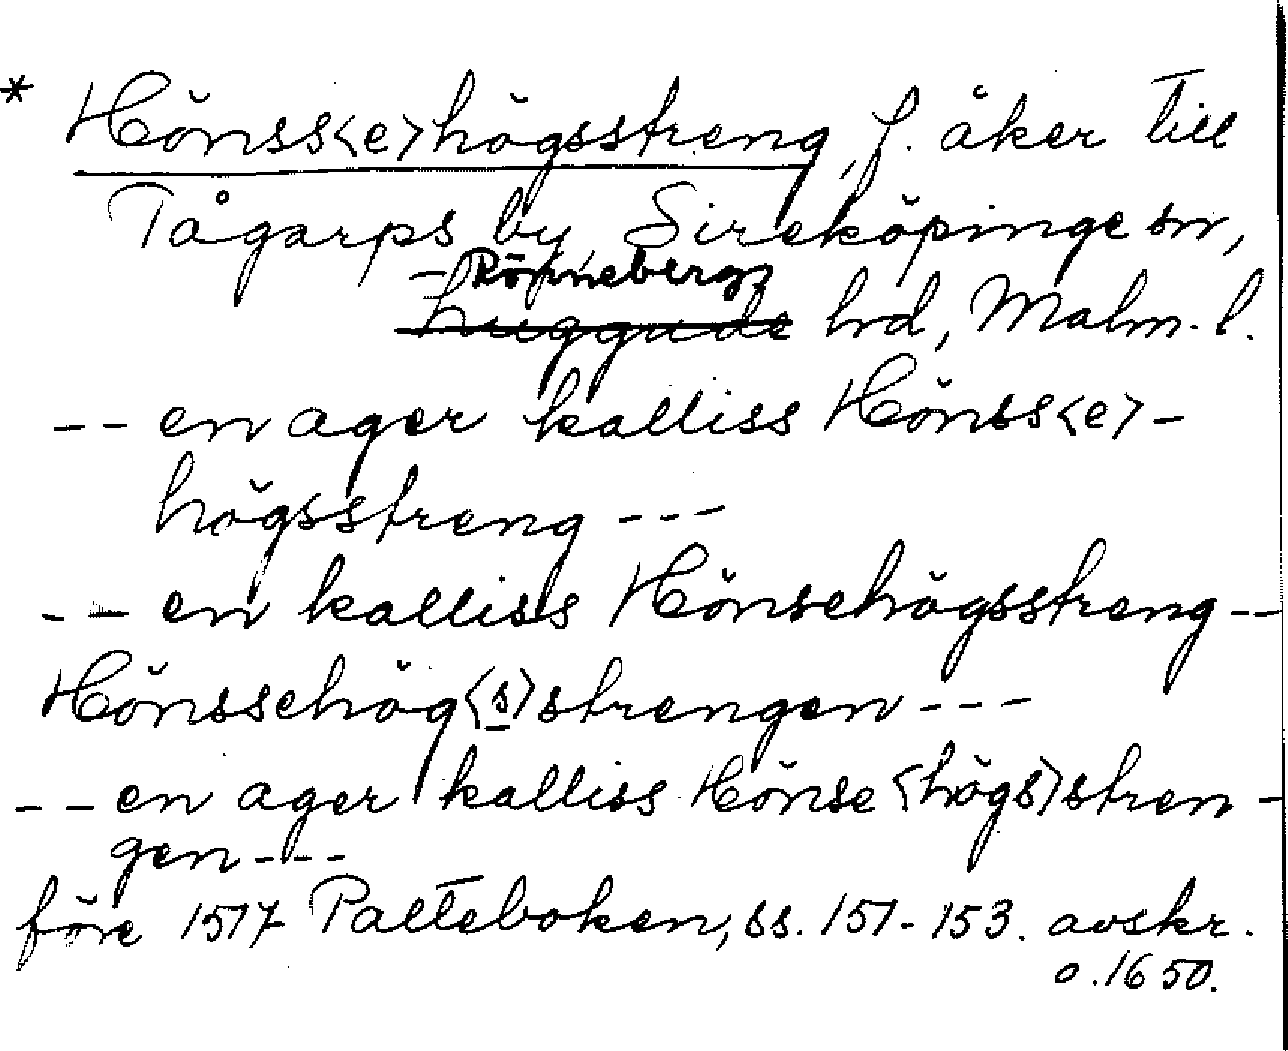 * Hönss<e>högsstreng, f. åker till
Tågarps by, Sireköpinge sn,
Rönneberg
Luggude hrd, Malm. l.
-- en ager kalliss Hönss<e>-
högsstreng ---
-- en kalliss Hönsehögsstreng --
Hönssehög<s>strengen ---
-- en ager kalliss Hönse<högs>stren-
gen ---
före 1517 Palteboken, ss. 151-153. avskr.
o. 1650.